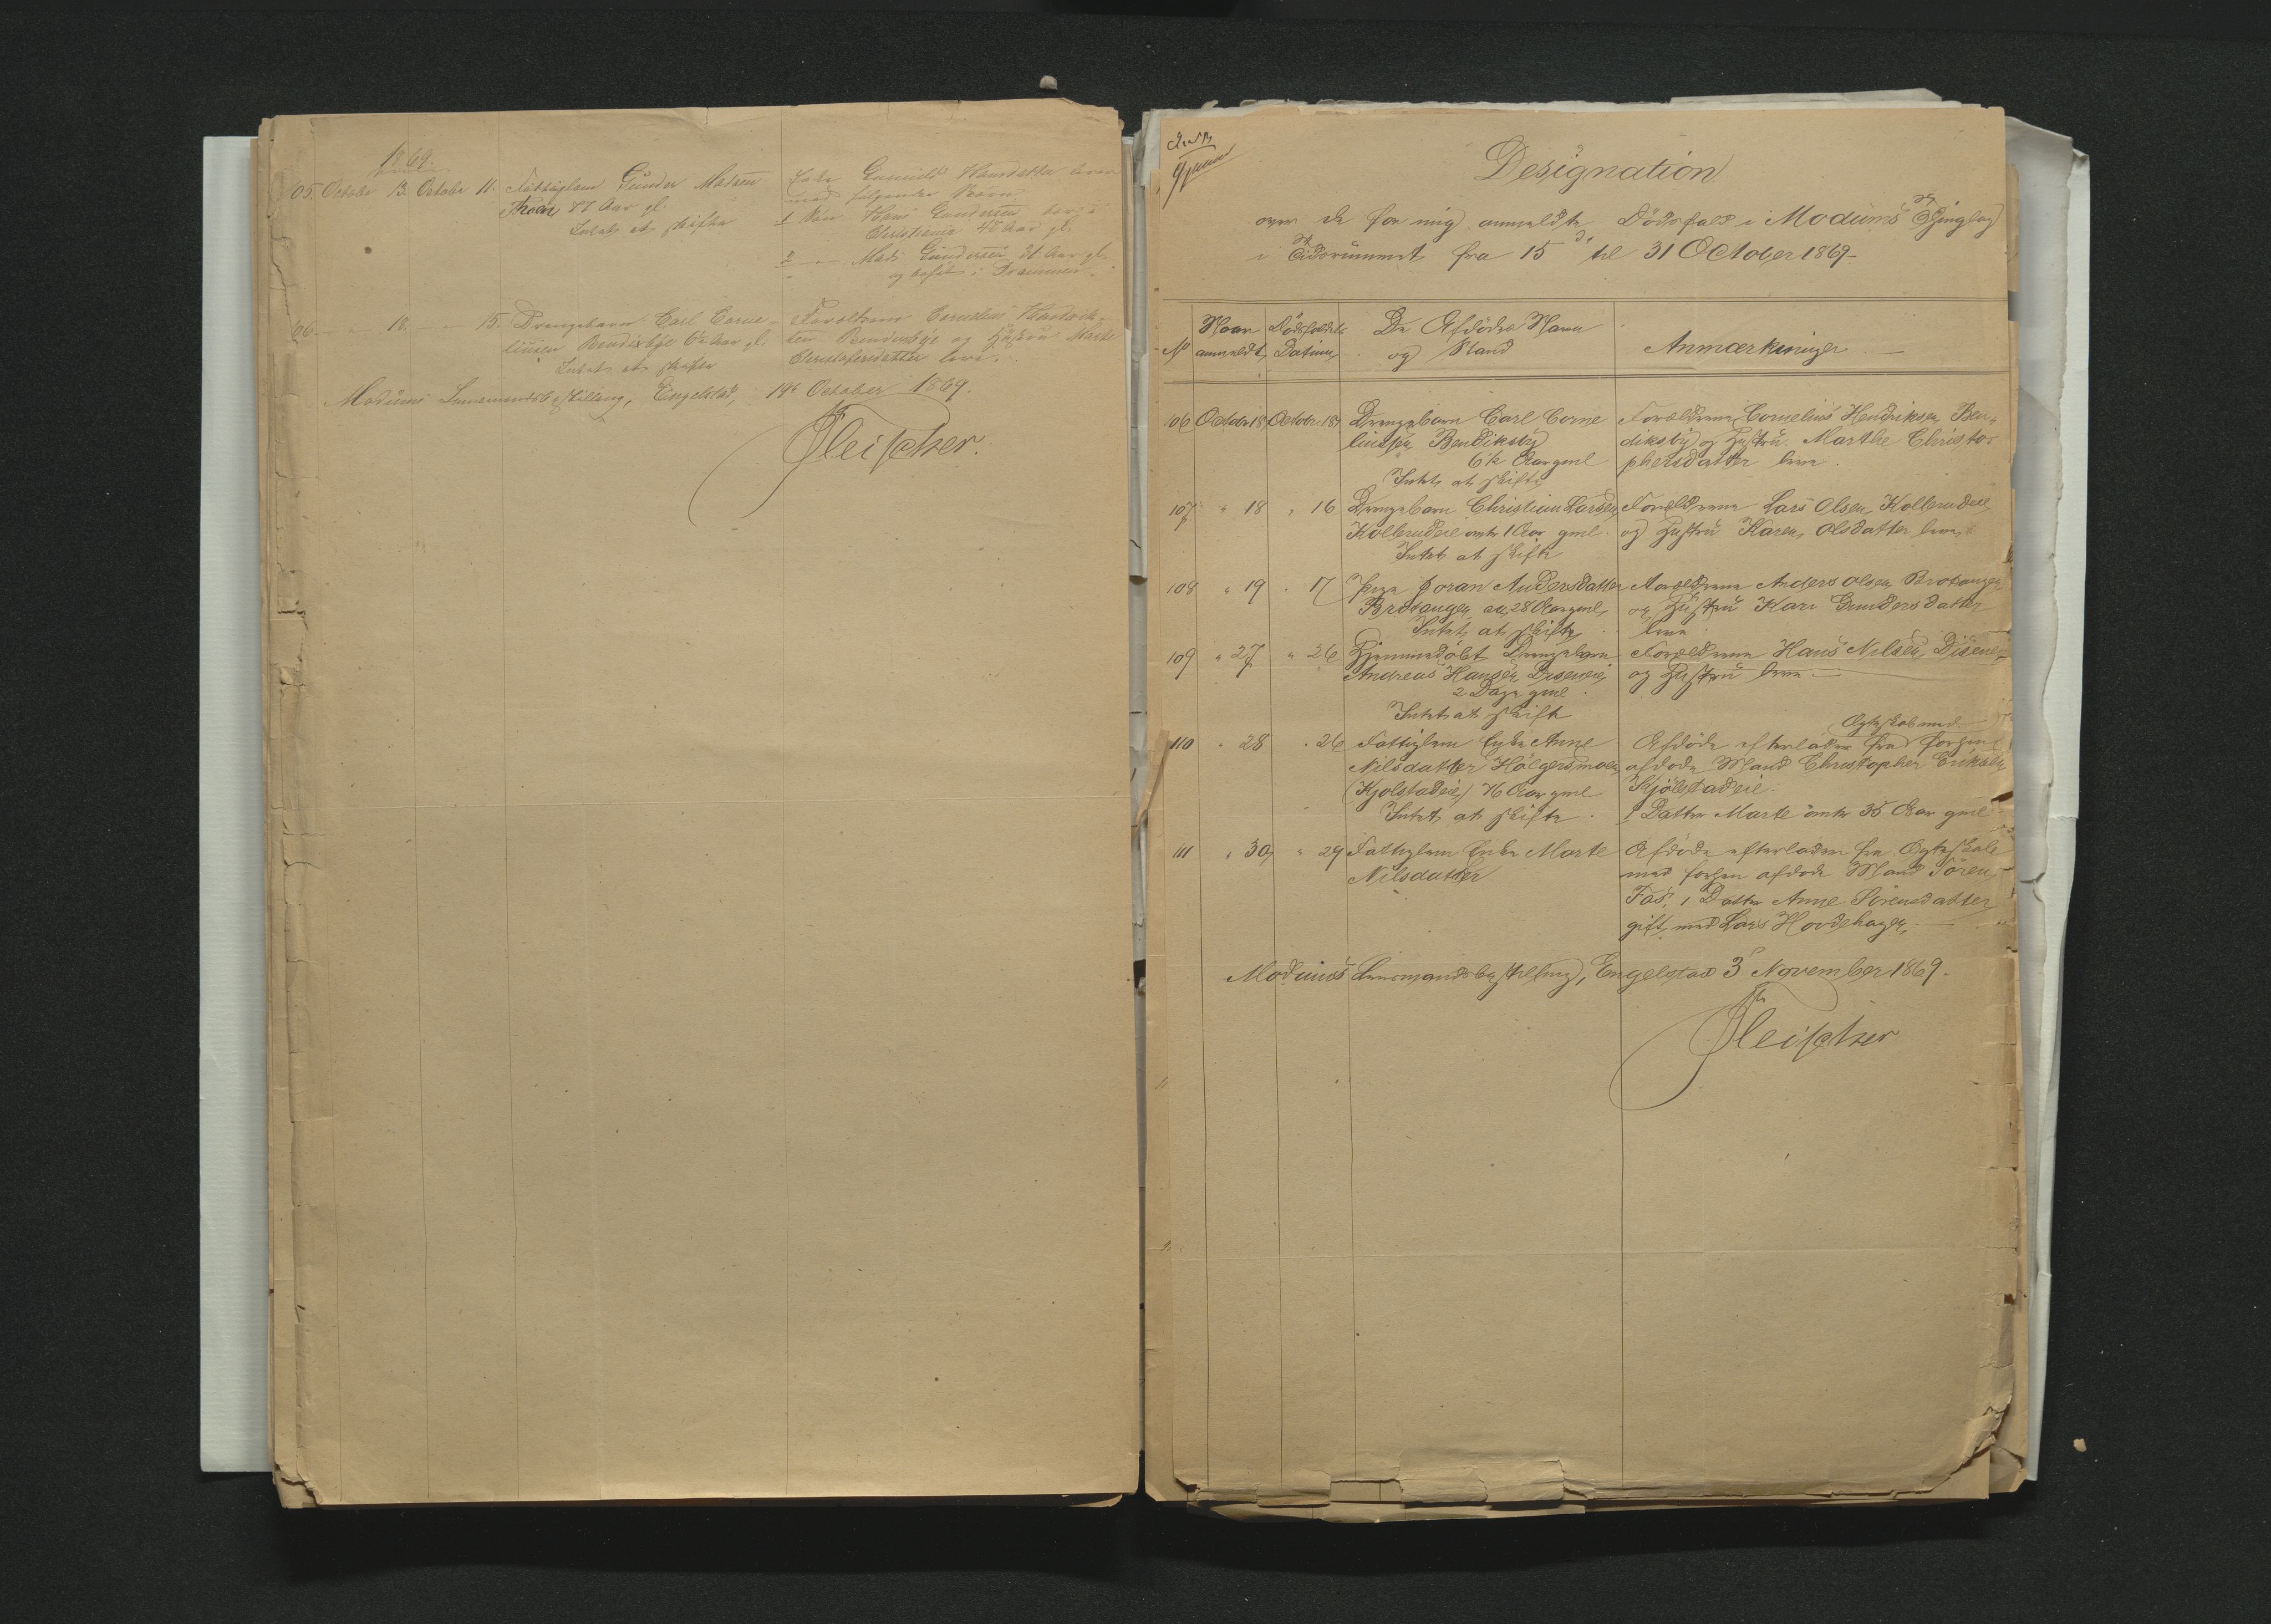 1869.
05. Octobr 13. Octobr 11. Fattiglem Gunder Madsen
Moen 77 Aar gl.
Intet at skifte
Enke Gunnild Hansdatter lever
med følgende Børn
1 Søn Hans Gundersen bor i
Christiania 42 Aar gl.
2 — Mads Gundersen 31 Aar gl.
og bosat i Drammen.
106 — 18. — 15. Drengebarn Carl Corne-
liussen Bendiksbye 6½ Aar gl.
Intet at skifte
Forældrene Cornelius Hendrik-
sen Bendiksbye og Hustru Marte
Christofersdatter leve.
Modums Lensmandsbestilling, Engelstad, 19de October 1869.
Fleischer.
Designation
over de for mig anmeldte Dödsfald i Modums Thinglag
i Tidsrummet fra 15de til 31 October 1869.
No
Naar anmeldt
Dödsfaldets Datum
De Afdödes Navn
og Stand
Anmærkninger
106 October 18 October 15 Drengebarn Carl Corne
liussen Bendiksby
6½ Aar gml
Intet at skifte
Forældrene Cornelius Hendriksen Ben-
diksby og Hustru Marthe Christo-
phersdatter leve.
107 " 18 " 16 Drengebarn Christian Larsen
Kolberudeie omtr 1 Aar gml
Intet at skifte
Forældrene Lars Olsen Kolberudeie
og Hustru Karen Olsdatter leve
108 " 19 " 17 Pige Joran Andersdatter
Brotanger, ca 28 Aar gml,
Intet at skifte
Forældrene Anders Olsen Brotanger
og Hustru Kari Gundersdatter
leve
109 " 27 " 26 Hjemmedöbt Drengebarn
Andreas Hansen Diseneie
2 Dage gml
Intet at skifte
Forældrene Hans Nilsen Diseneie
og Hustru leve —
110 " 28 " 26 Fattiglem Enke Anne
Nilsdatter Holgersmoen
(Kjolstadeie) 76 Aar gml
Intet at skifte
Ægteskab med
Afdöde efterlader fra forhen
afdöde Mand Christopher Eriksen
Kjölstadeie.
1 Datter Marte omtr 35 Aar gml
111 " 30 " 29 Fattiglem Enke Marte
Nilsdatter
Afdöde efterlader fra Ægteskab
med forhen afdöde Mand Sören
Fos, 1 Datter Anne Sörensdatter
gift med Lars Hovdehagen
Modums Lensmandsbestilling, Engelstad 3 November 1869.
Fleischer